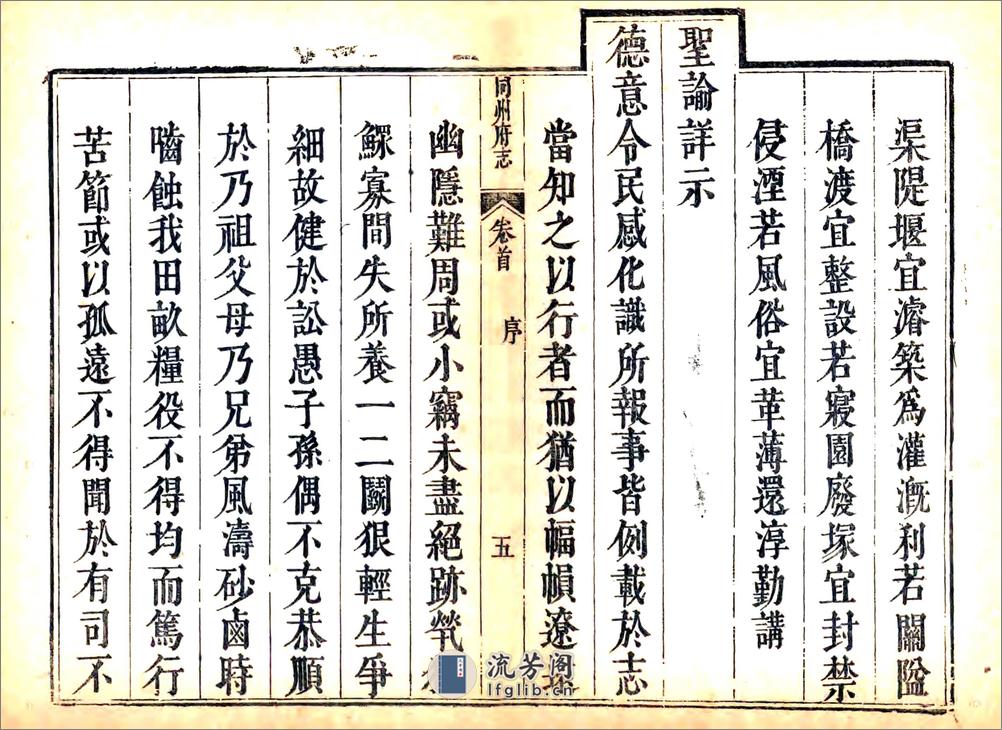 渠隄堰宜濬築爲灌漑利若關隘
橋渡宜整設若寢園廢塚宜封禁
侵湮若風俗宜革薄還淳勤講
聖諭詳示
德意令民感化識所報事皆例載於志
當知之以行者而猶以幅幀遼
同州府志
卷首
序
五
幽隱難周或小竊未盡絕跡煢
鰥寡間失所養一二鬬狠輕生爭
細故健於訟愚子孫偶不克恭順
於乃祖父母乃兄弟風濤砂鹵時
嚙蝕我田畝糧役不得均而篤行
苦節或以孤遠不得聞於有司不
流芳阁
lfglib.cn